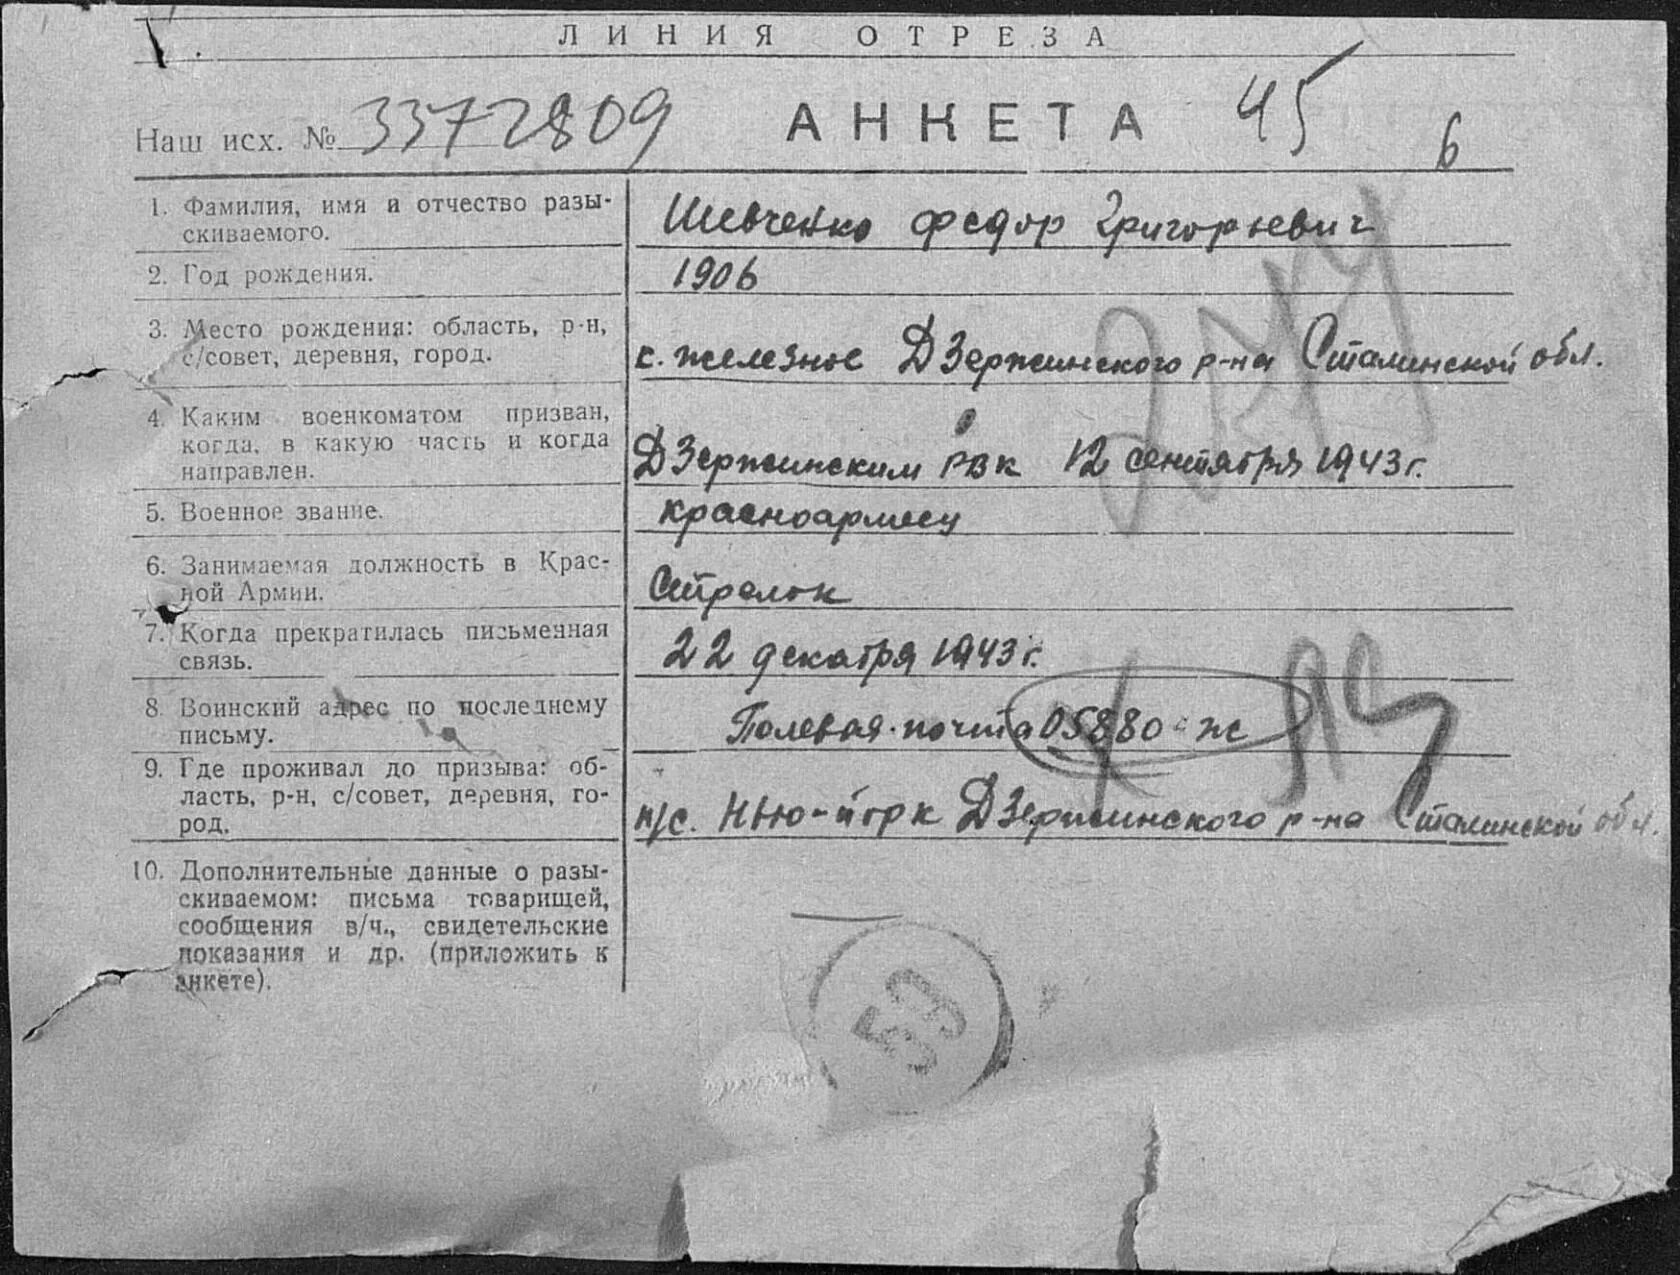 ЛИНИЯ ОТРЕЗА
Наш исх. № 3372809 АНКЕТА 45 6
1. Фамилия, имя и отчество разы-
скиваемого.
Шевченко Федор Григорьевич
2. Год рождения.
1906
3. Место рождения: область, р-н,
с/совет, деревня, город.
с. железное Дзержинского р-на Сталинской обл.
4. Каким военкоматом призван,
когда, в какую часть и когда
направлен.
Дзержинским РВК 12 сентября 1943 г.
5. Военное звание.
красноармеец
6. Занимаемая должность в Крас-
ной Армии.
Стрелок
7. Когда прекратилась письменная
связь.
22 декабря 1943 г.
8. Воинский адрес по последнему
письму.
Полевая почта 05880-ж
9. Где проживал до призыва: об-
ласть, р-н, с/совет, деревня, го-
род.
п/с. Нью-йорк Дзержинского р-на Сталинской обл.
10. Дополнительные данные о разы-
скиваемом: письма товарищей,
сообщения в/ч., свидетельские
показания и др. (приложить к
анкете).
53